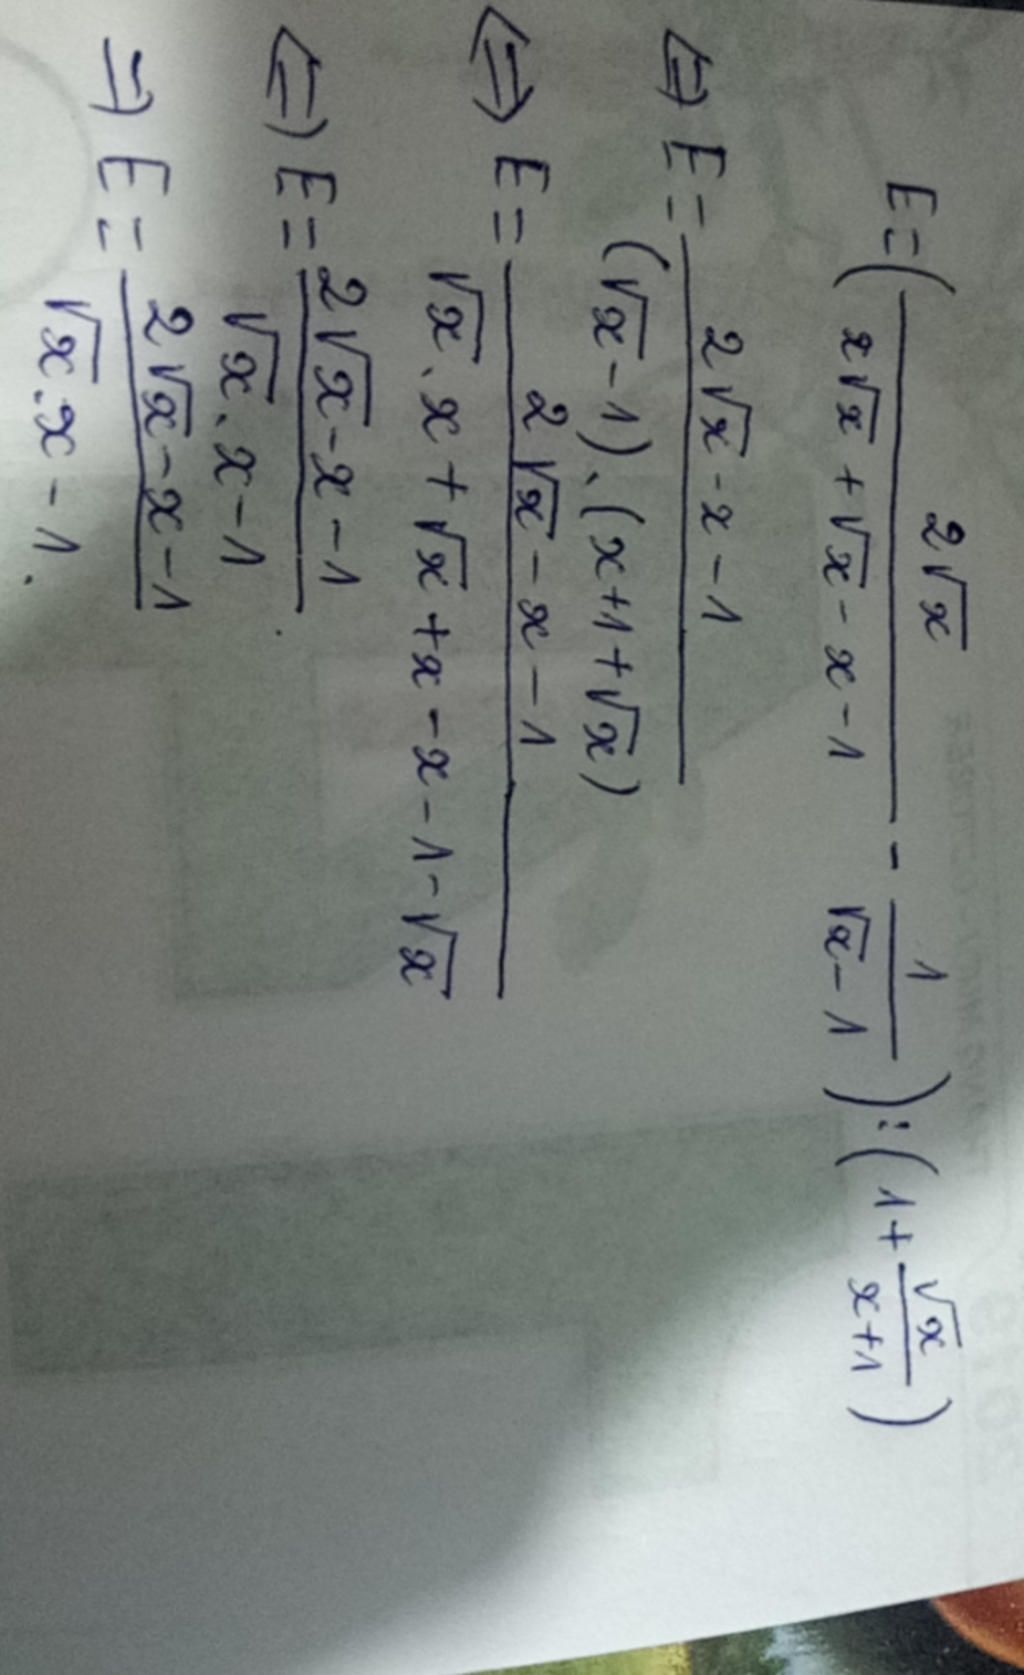 E = ( 2√x / (x√x + √x - x - 1) - 1 / (√x - 1) ) : ( 1 + √x / (x+1) )
⇔ E = (2√x - x - 1) / ((√x - 1).(x+1+√x))
⇔ E = (2√x - x - 1) / (√x.x + √x + x - x - 1 - √x)
⇔ E = (2√x - x - 1) / (√x.x - 1)
⇒ E = (2√x - x - 1) / (√x.x - 1).